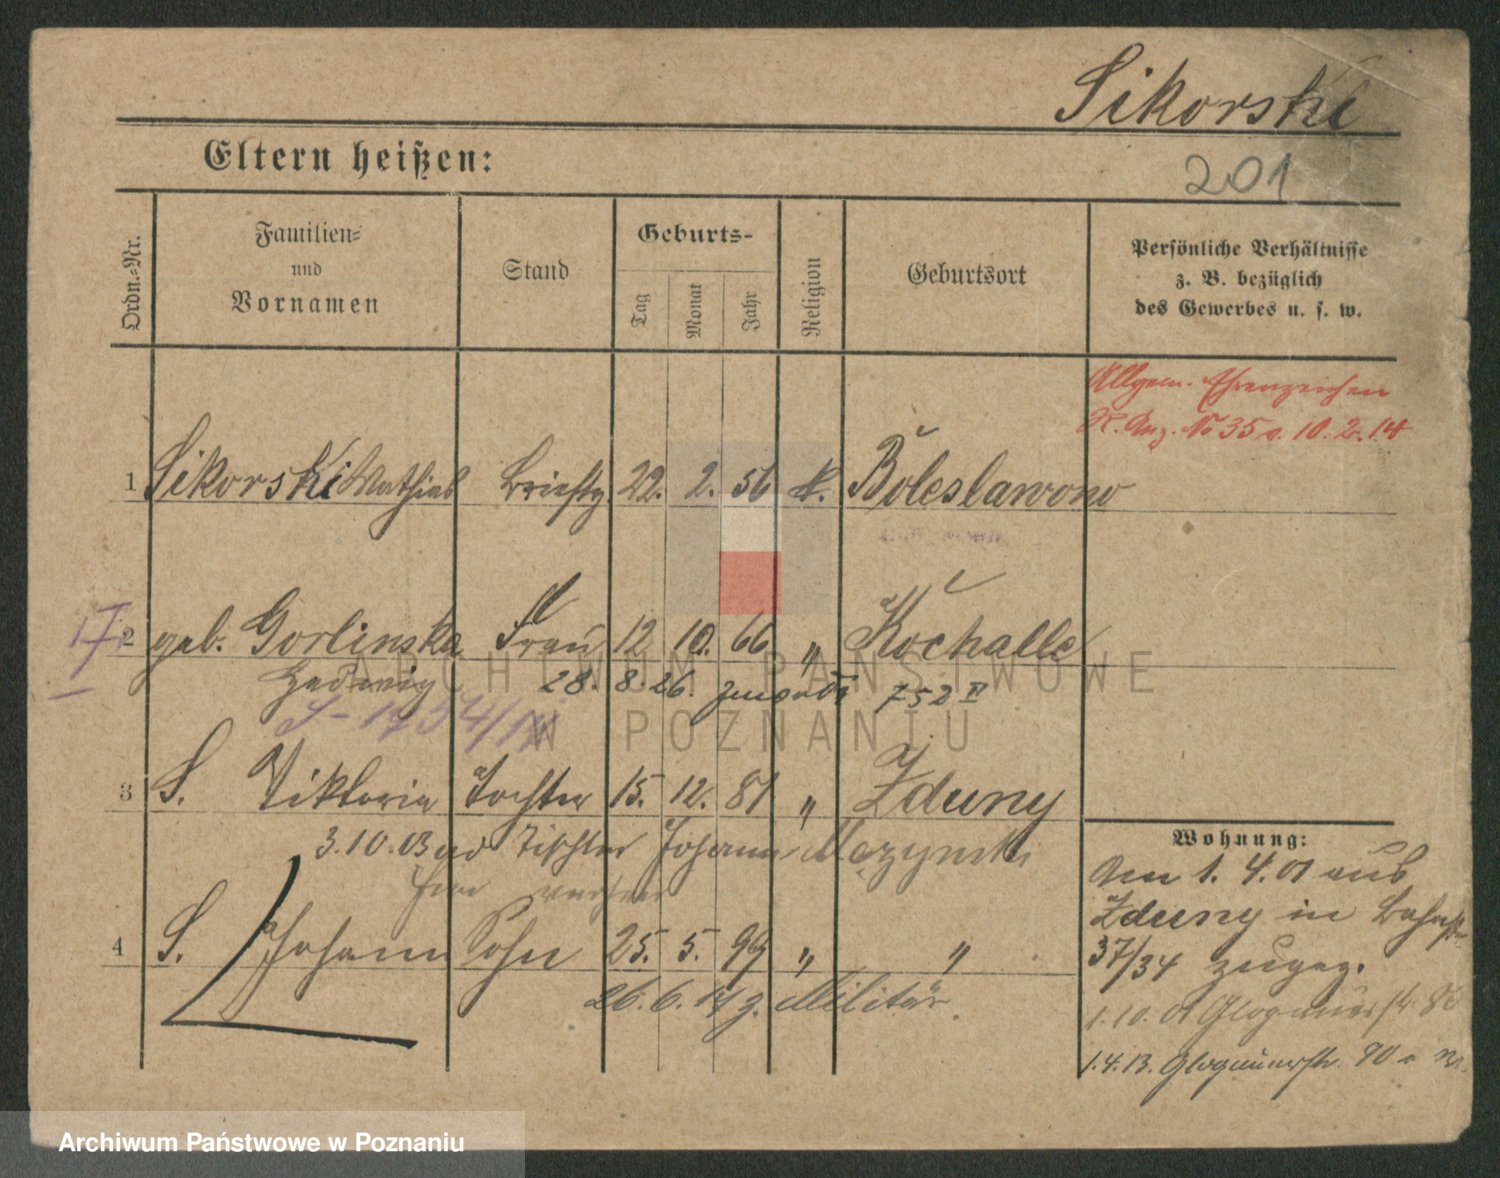 Sikorski
Eltern heißen:
201
Ordn.=Nr.
Familien=
und
Vornamen
Stand
Geburts=
Tag
Monat
Jahr
Religion
Geburtsort
Persönliche Verhältnisse
z. B. bezüglich
des Gewerbes u. s. w.
Allgem. Ehrenzeichen
R. Anz. No 35 v. 10. 2. 14
1 Sikorski Mathias Brieftg 22. 2. 56 k. Boleslawowo
17
2 geb. Gorlinska Frau 12 10. 66 " Kochalle
Hedwig 28. 8. 26. 752 II
3 S. Viktoria Tochter 15. 12. 81 " Zduny
3.10.03 Tischler Johann
4 S. Johann Sohn 25. 5. 99 " "
26. 6. z. Militär.
Wohnung:
Am 1. 4. 01 aus
Zduny in Bahnstr.
37/34 zugez.
1.10. 01 Glogauerstr
1.4.13. Glogauerstr. 90
ARCHIWUM PAŃSTWOWE
W POZNANIU
Archiwum Państwowe w Poznaniu